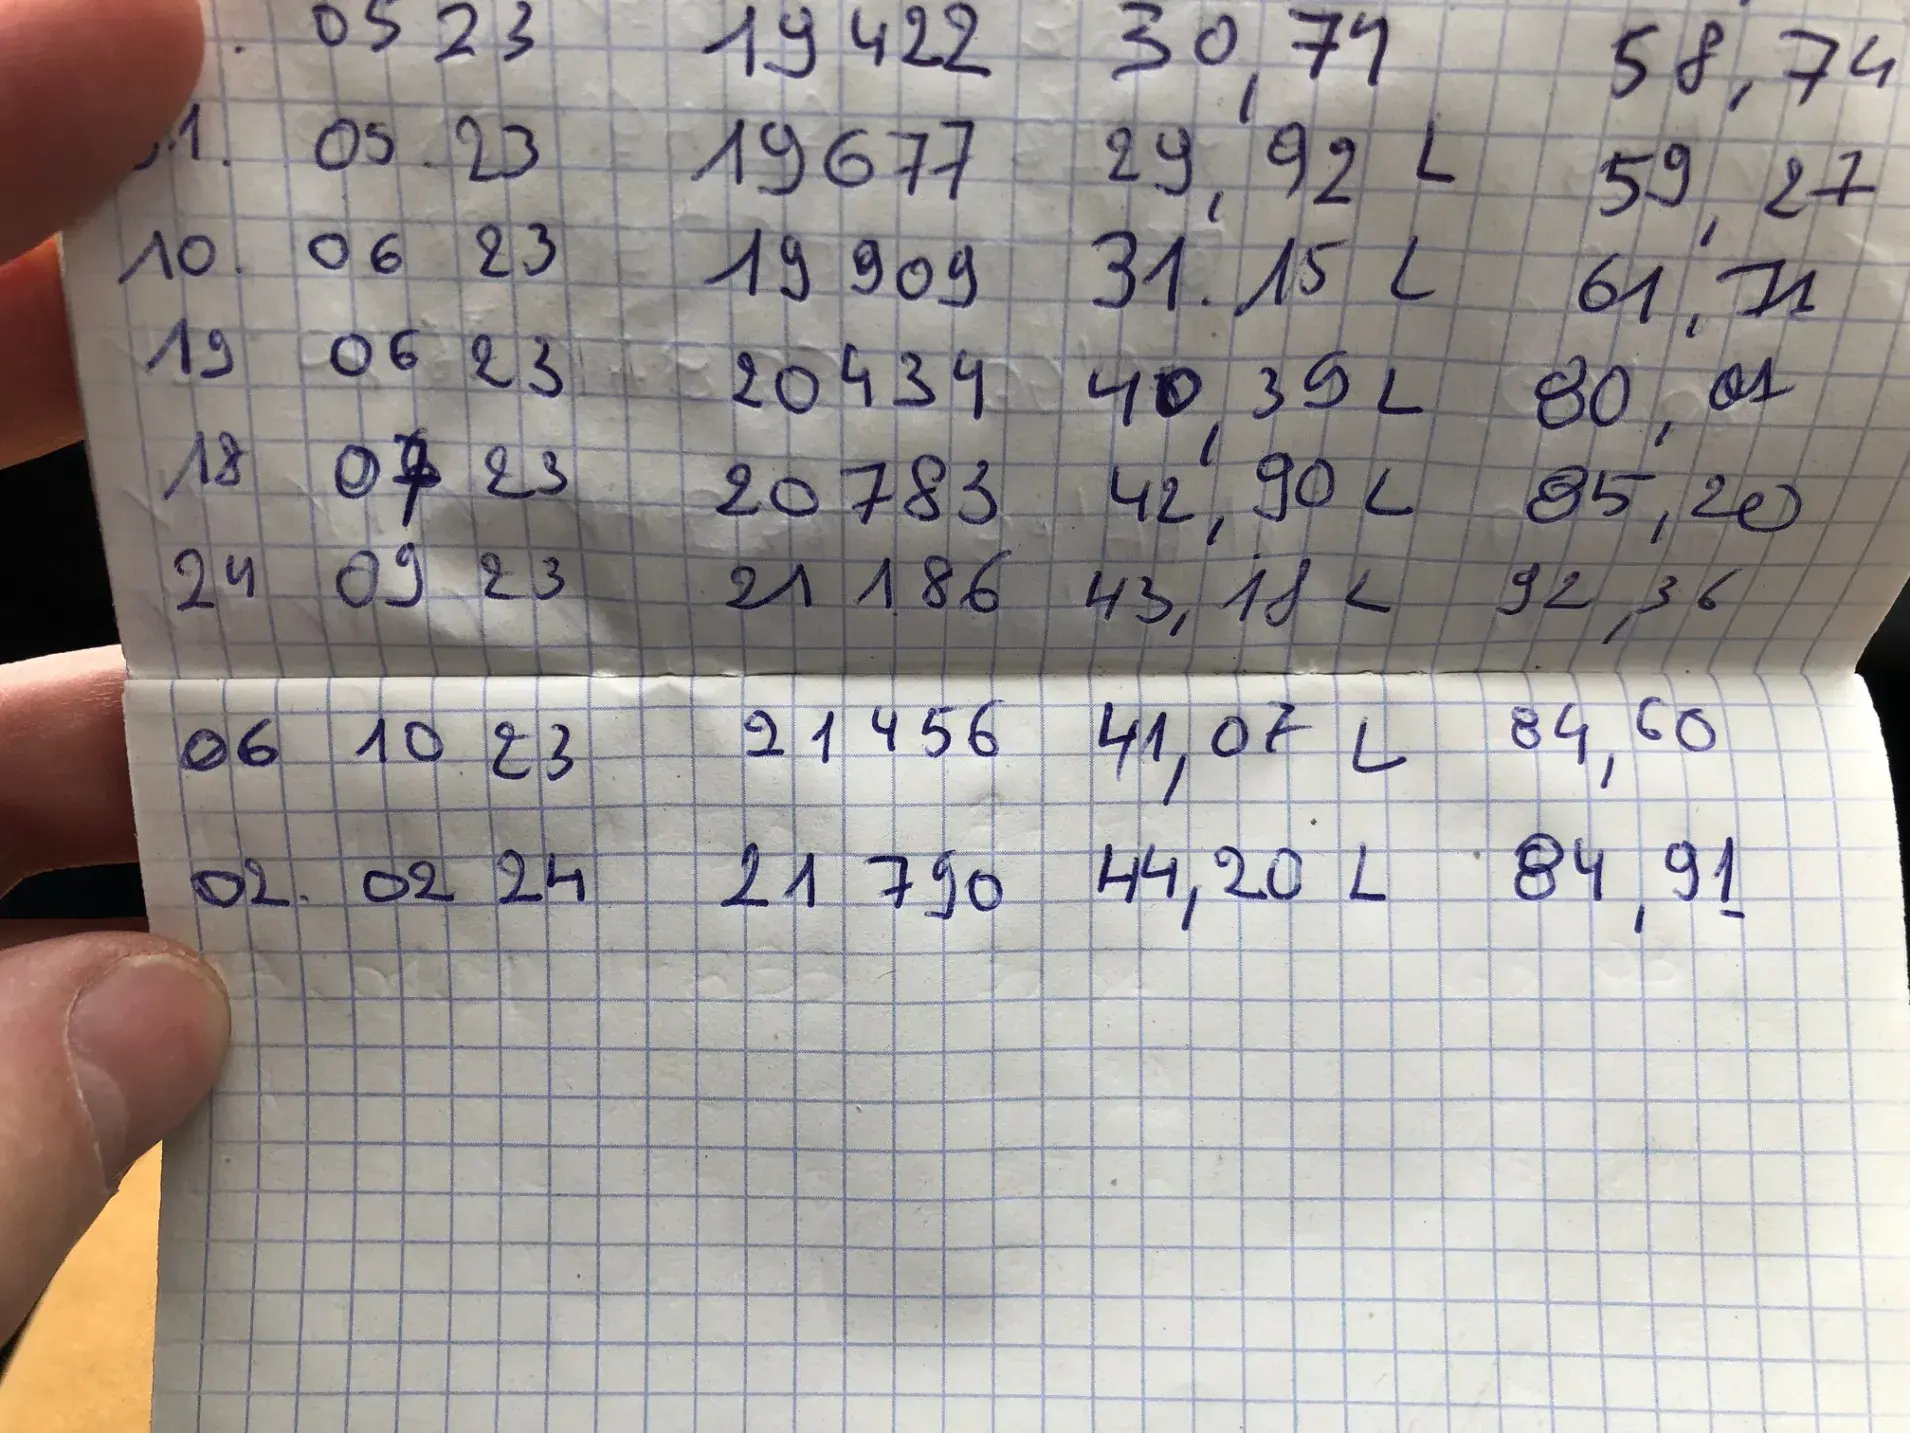 . 05 23 19 422 30,71 58,74
31. 05.23 19677 29,92 L 59,27
10. 06 23 19 909 31.15 L 61,71
19 06 23 20434 40,39 L 80,01
18 07 23 20783 42,90 L 85,20
24 09 23 21 186 43,18 L 92,36
06 10 23 21456 41,07 L 84,60
02. 02 24 21 790 44,20 L 84,91